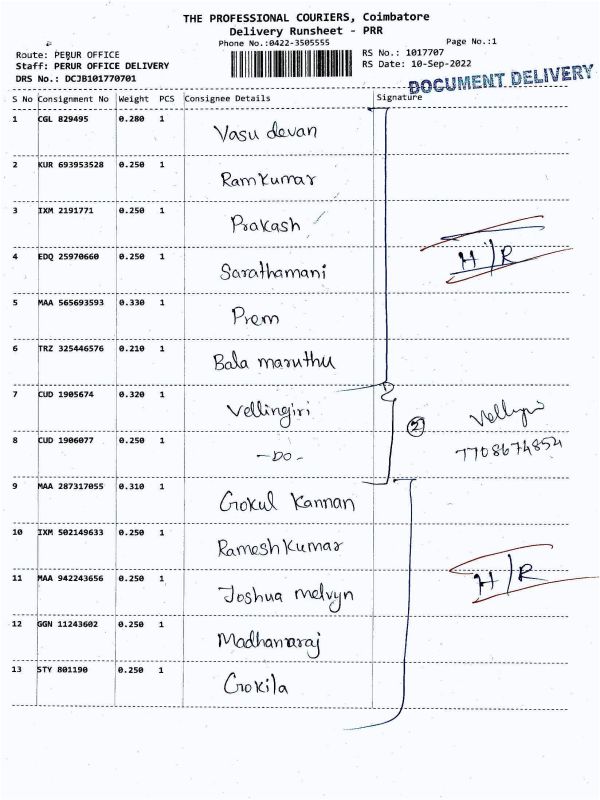 THE PROFESSIONAL COURIERS, Coimbatore
Delivery Runsheet - PRR
Phone No.:0422-3505555
Page No.:1
Route: PERUR OFFICE
RS No.: 1017707
Staff: PERUR OFFICE DELIVERY
RS Date: 10-Sep-2022
DRS No.: DCJB101770701
DOCUMENT DELIVERY
S No Consignment No Weight PCS Consignee Details Signature
1 CGL 829495 0.280 1 Vasu devan
2 KUR 693953528 0.250 1 Ramkumar
3 IXM 2191771 0.250 1 Prakash
H/R
4 EDQ 25970660 0.250 1 Sarathamani
5 MAA 565693593 0.330 1 Prem
6 TRZ 325446576 0.210 1 Bala maruthu
7 CUD 1905674 0.320 1 Vellingiri
2
8 CUD 1906077 0.250 1 -Do- 7708674854
9 MAA 287317055 0.310 1 Gokul Kannan
10 IXM 502149633 0.250 1 Ramesh Kumar
11 MAA 942243656 0.250 1 Joshua melvyn H/R
12 GGN 11243602 0.250 1 Madhanraj
13 STY 801190 0.250 1 Gokila